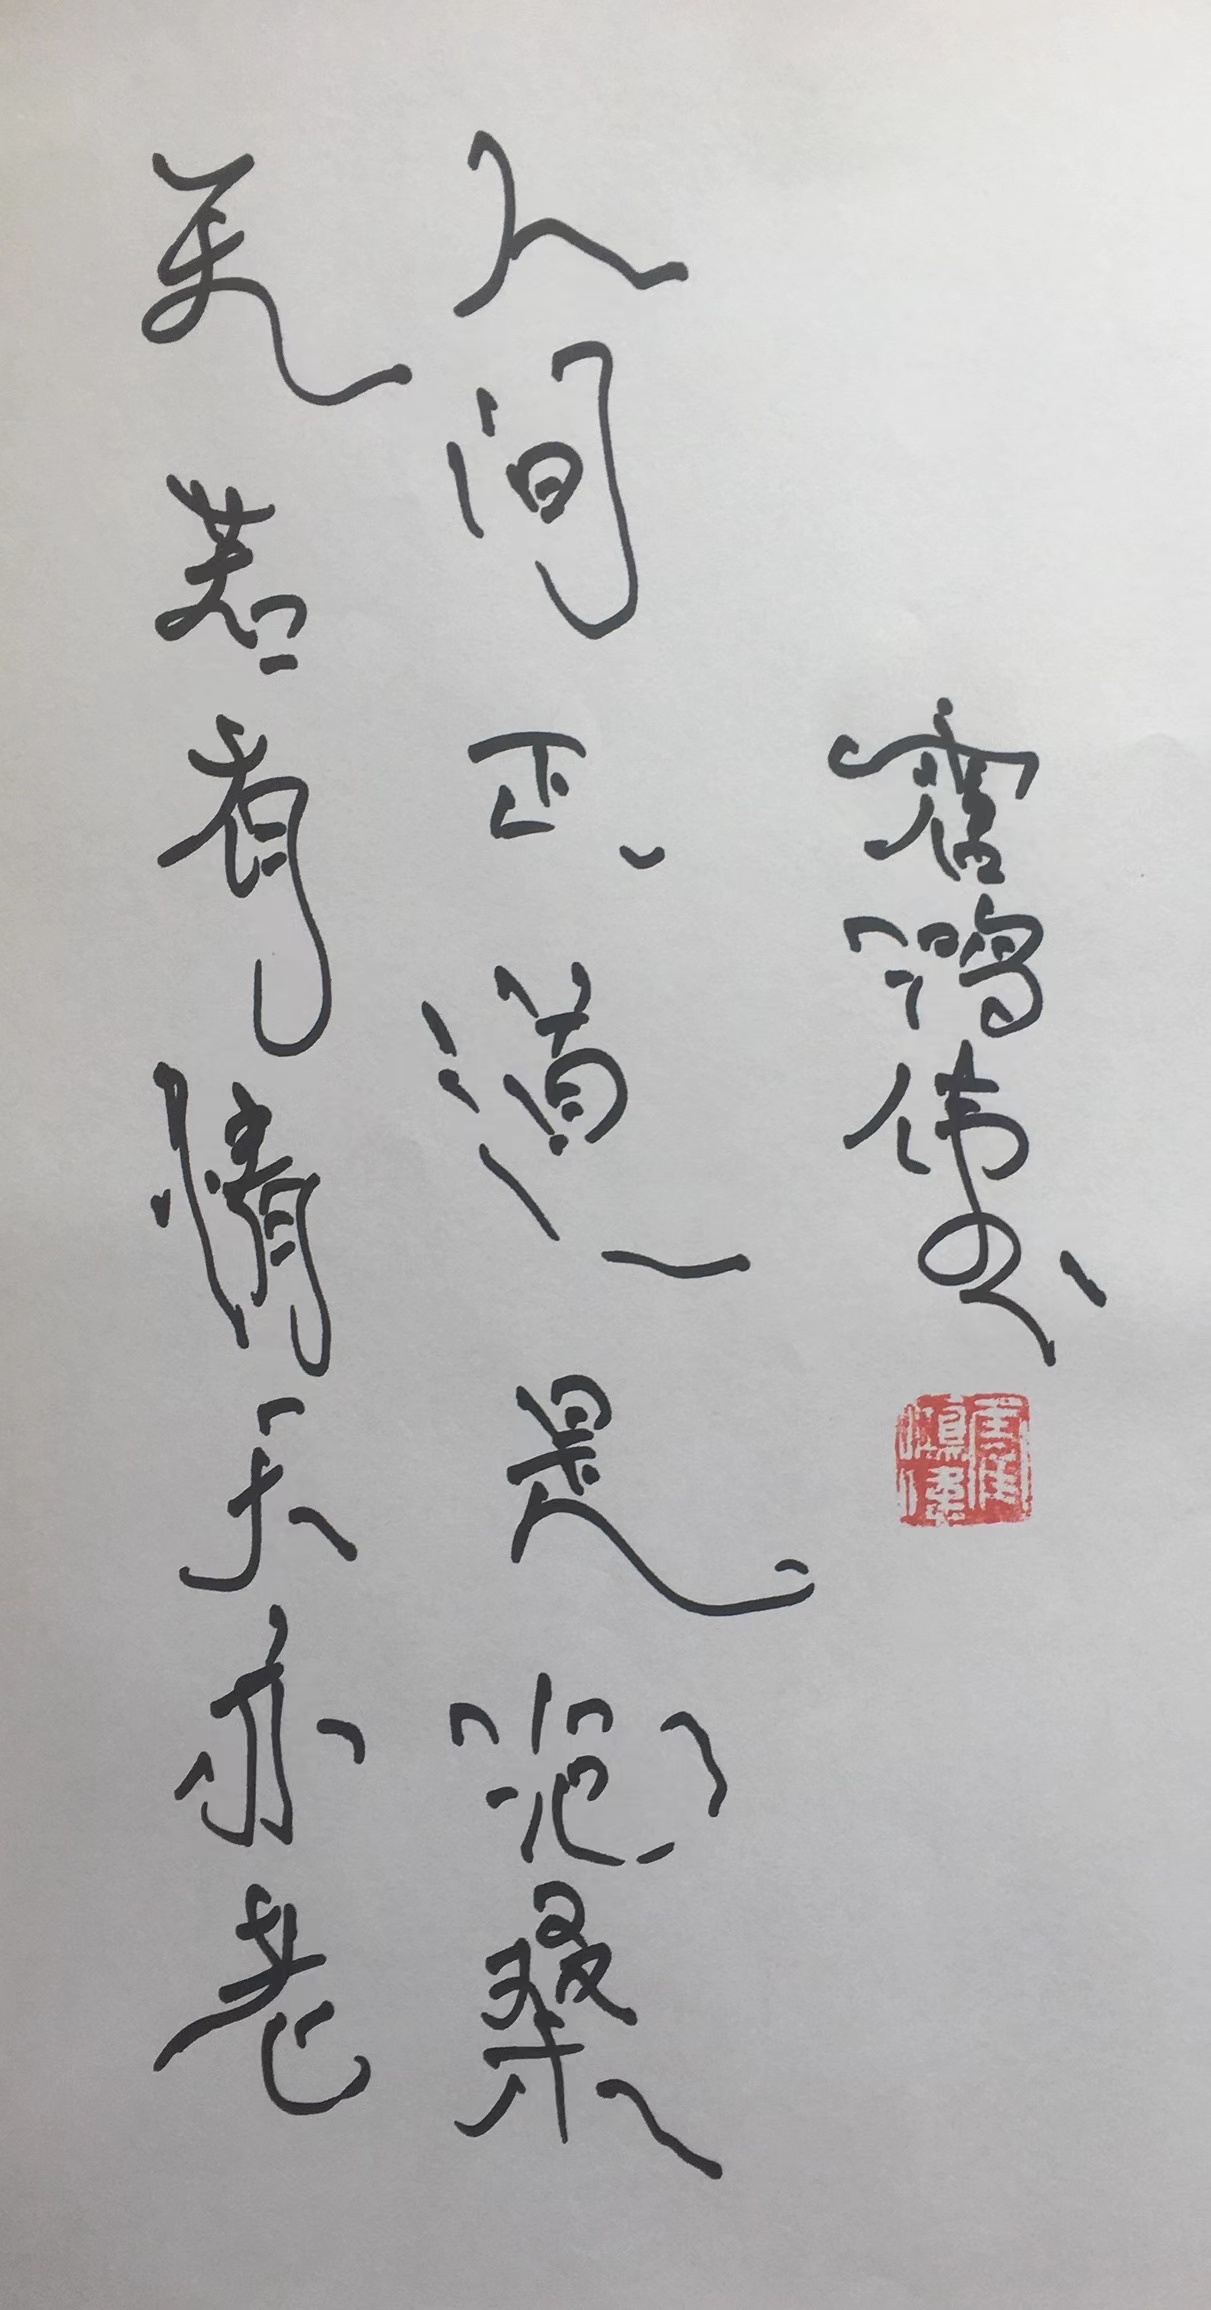 天若有情天亦老
人间正道是沧桑
霍鸿伟书